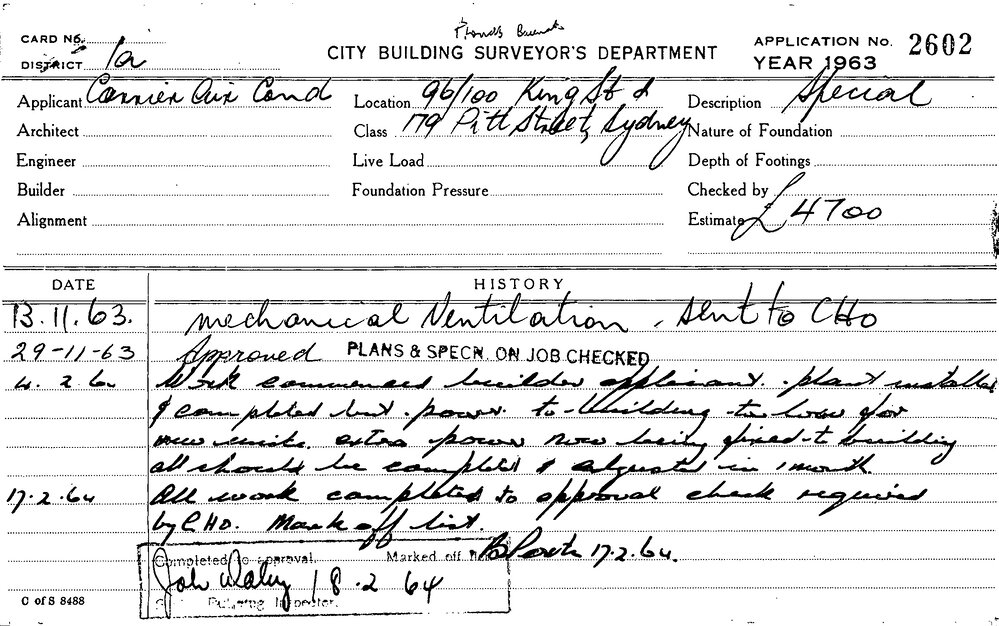 CARD No.
DISTRICT 1a
CITY BUILDING SURVEYOR'S DEPARTMENT
APPLICATION No. 2602
YEAR 1963
Applicant Carrier Air Cond
Architect
Engineer
Builder
Alignment
Location 96/100 King St &
Class 179 Pitt Street, Sydney
Live Load
Foundation Pressure
Description Special
Nature of Foundation
Depth of Footings
Checked by
Estimate £4700
DATE HISTORY
13.11.63. Mechanical Ventilation. Sent to CHO
29-11-63 Approved PLANS & SPECN. ON JOB CHECKED
4. 2. 64 Work commenced builder applicant. plant installed
& completed but power to building to low for
new units. extra power now being fixed to building
all should be completed & adjusted in 1 month.
17.2.64 All work completed to approval check required
by CHO. Mark off list.
17.2.64.
Completed to approval. Marked off
18.2 64
Inspector.
C of S 8488